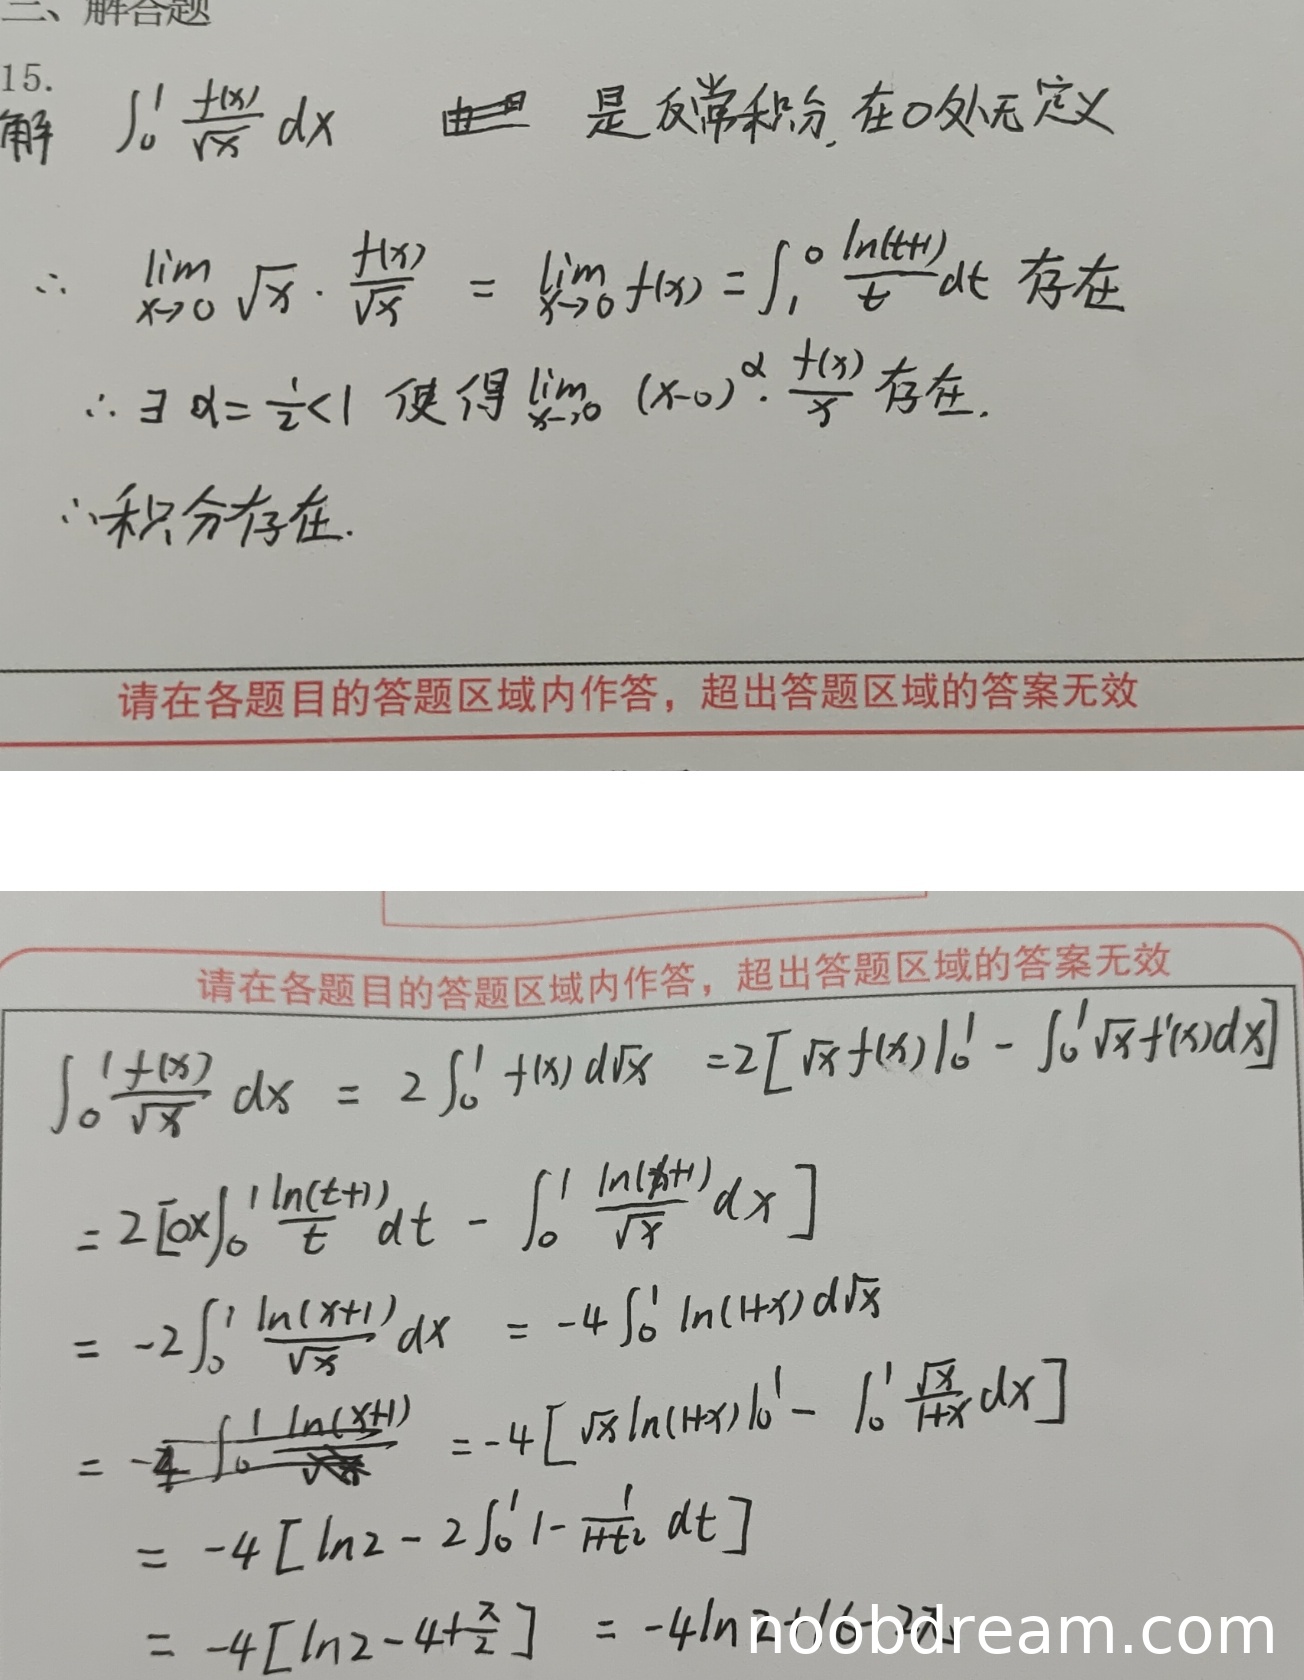 二、解答题
15.
解 ∫₀¹ f(x)/√x dx 是反常积分, 在0处无定义
∴ lim x→0 √x · f(x)/√x = lim x→0 f(x) = ∫₁⁰ ln(t+1)/t dt 存在
∴ ∃ α = 1/2 < 1 使得 lim x→0 (x-0)^α · f(x)/x 存在.
∴ 积分存在.
请在各题目的答题区域内作答，超出答题区域的答案无效
请在各题目的答题区域内作答，超出答题区域的答案无效
∫₀¹ f(x)/√x dx = 2∫₀¹ f(x) d√x = 2[√x f(x)|₀¹ - ∫₀¹ √x f'(x)dx]
= 2[0×∫₀¹ ln(t+1)/t dt - ∫₀¹ ln(x+1)/√x dx]
= -2∫₀¹ ln(x+1)/√x dx = -4∫₀¹ ln(1+x) d√x
= -4[√x ln(1+x)|₀¹ - ∫₀¹ √x/(1+x) dx]
= -4[ln2 - 2∫₀¹ 1 - 1/(1+t²) dt]
= -4[ln2 - 4 + π/2] = -4ln2+16-2π
noobdream.com